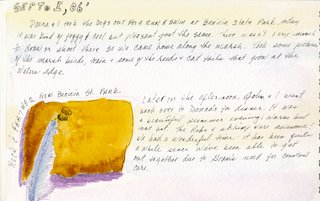 SEPT 5, 06'
Donna & I took the dogs out for a Run & Swim at Benicia State Park. Today
it was kind of foggy & cool but pleasant just the same. There wasn't very much
to draw or shoot there so we came home along the marsh. Took some pictures
of the marsh birds, train & some of the reeds & cat tails that grow at the
water edge.
FEATHER from Benicia St. Park
Later in the afternoon & I went
back over to Donna's for dinner. It was
a beautiful summer evening; warm but
not hot. The Kebobs & were awesome,
we had a wonderful time. It has been quite
awhile since we've been able to get
out together due to need for constant
care.